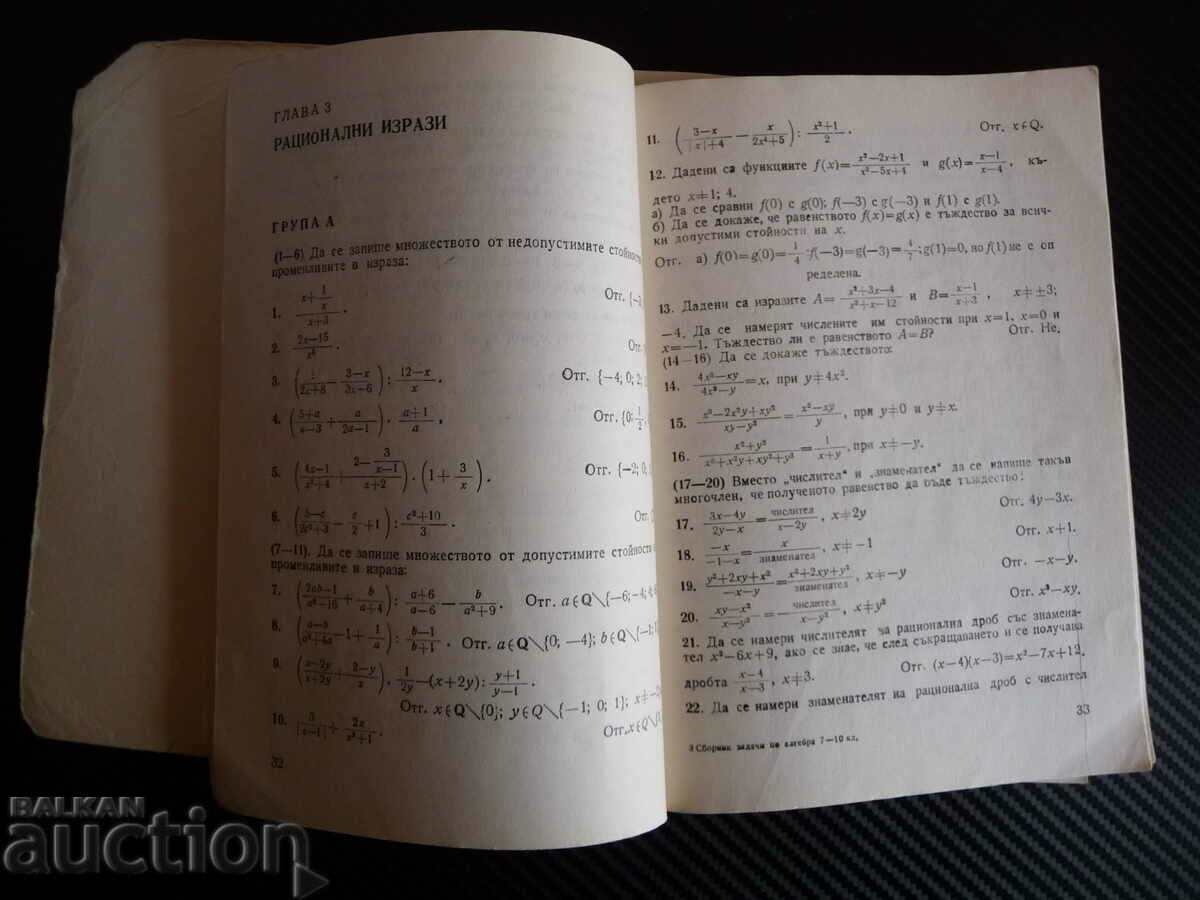 ГЛАВА 3
РАЦИОНАЛНИ ИЗРАЗИ
ГРУПА А
(1—6) Да се запише множеството от недопустимите стойности
променливите в израза:
1. (x+1/x)/(x+3). Отг. {—3
2. (2x—15)/x². Отг.
3. (1/(2x+8) — (3—x)/(3x—6)) : (12—x)/x. Отг. {—4; 0; 2;
4. ((5+a)/(a—3) + a/(2a—1)) · (a+1)/a. Отг. {0; 1/2,
5. ((4x—1)/(x²+4) + (2—3/(x—1))/(x+2)) · (1+3/x). Отг. {—2; 0;
6. ((5—c)/(2c²+3) — c/2 + 1) : (c²+10)/3. Отг.
(7—11). Да се запише множеството от допустимите стойности
променливите в израза:
7. ((2ab—1)/(a²—16) + b/(a+4)) : (a+6)/(a—6) — b/(a²+9). Отг. a∈Q\{—6; —4;
8. ((a—b)/(a²+4a) —1+ 1/a) : (b—1)/(b+1). Отг. a∈Q\{0, —4}; b∈Q\{—1;
9. ((x—2y)/(x+2y) + (2—y)/x) · 1/2y —(x+2y) : (y+1)/(y—1).
Отг. x∈Q\{0}; y∈Q\{—1; 0; 1}; x≠—2
10. 3/(|x—1|) + 2x/(x²+1). Отг. x∈Q\{
32
11. ((3—x)/(|x|+4) — x/(2x⁴+5)) : (x²+1)/2. Отг. x∈Q.
12. Дадени са функциите f(x)=(x²—2x+1)/(x²—5x+4) и g(x)=(x—1)/(x—4), къ-
дето x≠1; 4.
а) Да се сравни f(0) с g(0); f(—3) с g(—3) и f(1) с g(1).
б) Да се докаже, че равенството f(x)=g(x) е тъждество за всич-
ки допустими стойности на x.
Отг. а) f(0)=g(0)=1/4 ·f(—3)=g(—3)=1/2; g(1)=0, но f(1) не е оп
ределена.
13. Дадени са изразите A=(x²+3x—4)/(x²+x—12) и B=(x—1)/(x+3), x≠±3;
—4. Да се намерят числените им стойности при x=1, x=0 и
x=—1. Тъждество ли е равенството A=B? Отг. Не.
(14—16) Да се докаже тъждеството:
14. (4x³—xy)/(4x²—y)=x, при y≠4x².
15. (x³—2x²y+xy²)/(xy—y²)=(x²—xy)/y, при y≠0 и y≠x.
16. (x²+y²)/(x³+x²y+xy²+y³)=1/(x+y), при x≠—y.
(17—20) Вместо „числител“ и „знаменател“ да се напише такъв
многочлен, че полученото равенство да бъде тъждество:
17. (3x—4y)/(2y—x)=числител/(x—2y), x≠2y Отг. 4y—3x.
18. —x/(—1—x)=x/знаменател, x≠—1 Отг. x+1.
19. (y²+2xy+x²)/(—x—y)=(x²+2xy+y²)/знаменател, x≠—y Отг. —x—y.
20. (xy—x²)/(x—y²)=—числител/(x—y²), x≠y² Отг. x²—xy.
21. Да се намери числителят на рационална дроб със знамена-
тел x²—6x+9, ако се знае, че след съкращаването и се получава
дробта (x—4)/(x—3), x≠3. Отг. (x—4)(x—3)=x²—7x+12.
22. Да се намери знаменателят на рационална дроб с числител
33
3 Сборник задачи по алгебра 7—10 кл.
BALKAN
auction